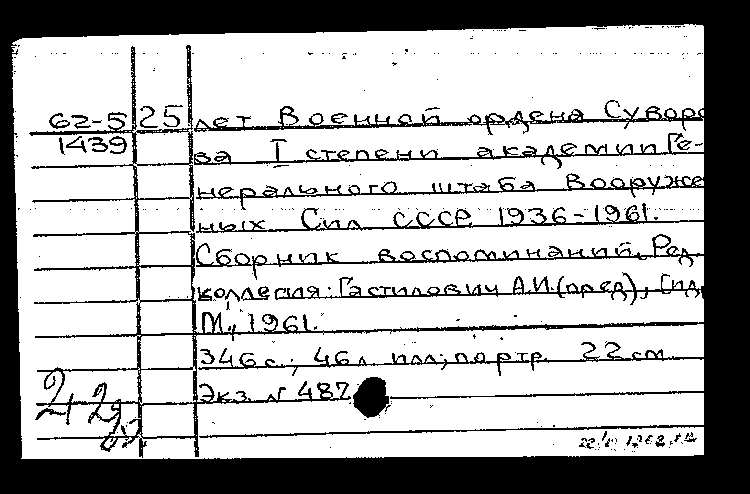 62-5 25 лет Военной ордена Суворо
1439 ва I степени академии Ге-
нерального штаба Вооруже
ных Сил СССР. 1936-1961.
Сборник воспоминаний. Ред.
коллегия: Гастилович А.И. (пред),
М., 1961.
346 с.; 46 л илл; портр. 22 см
Экз. N 487